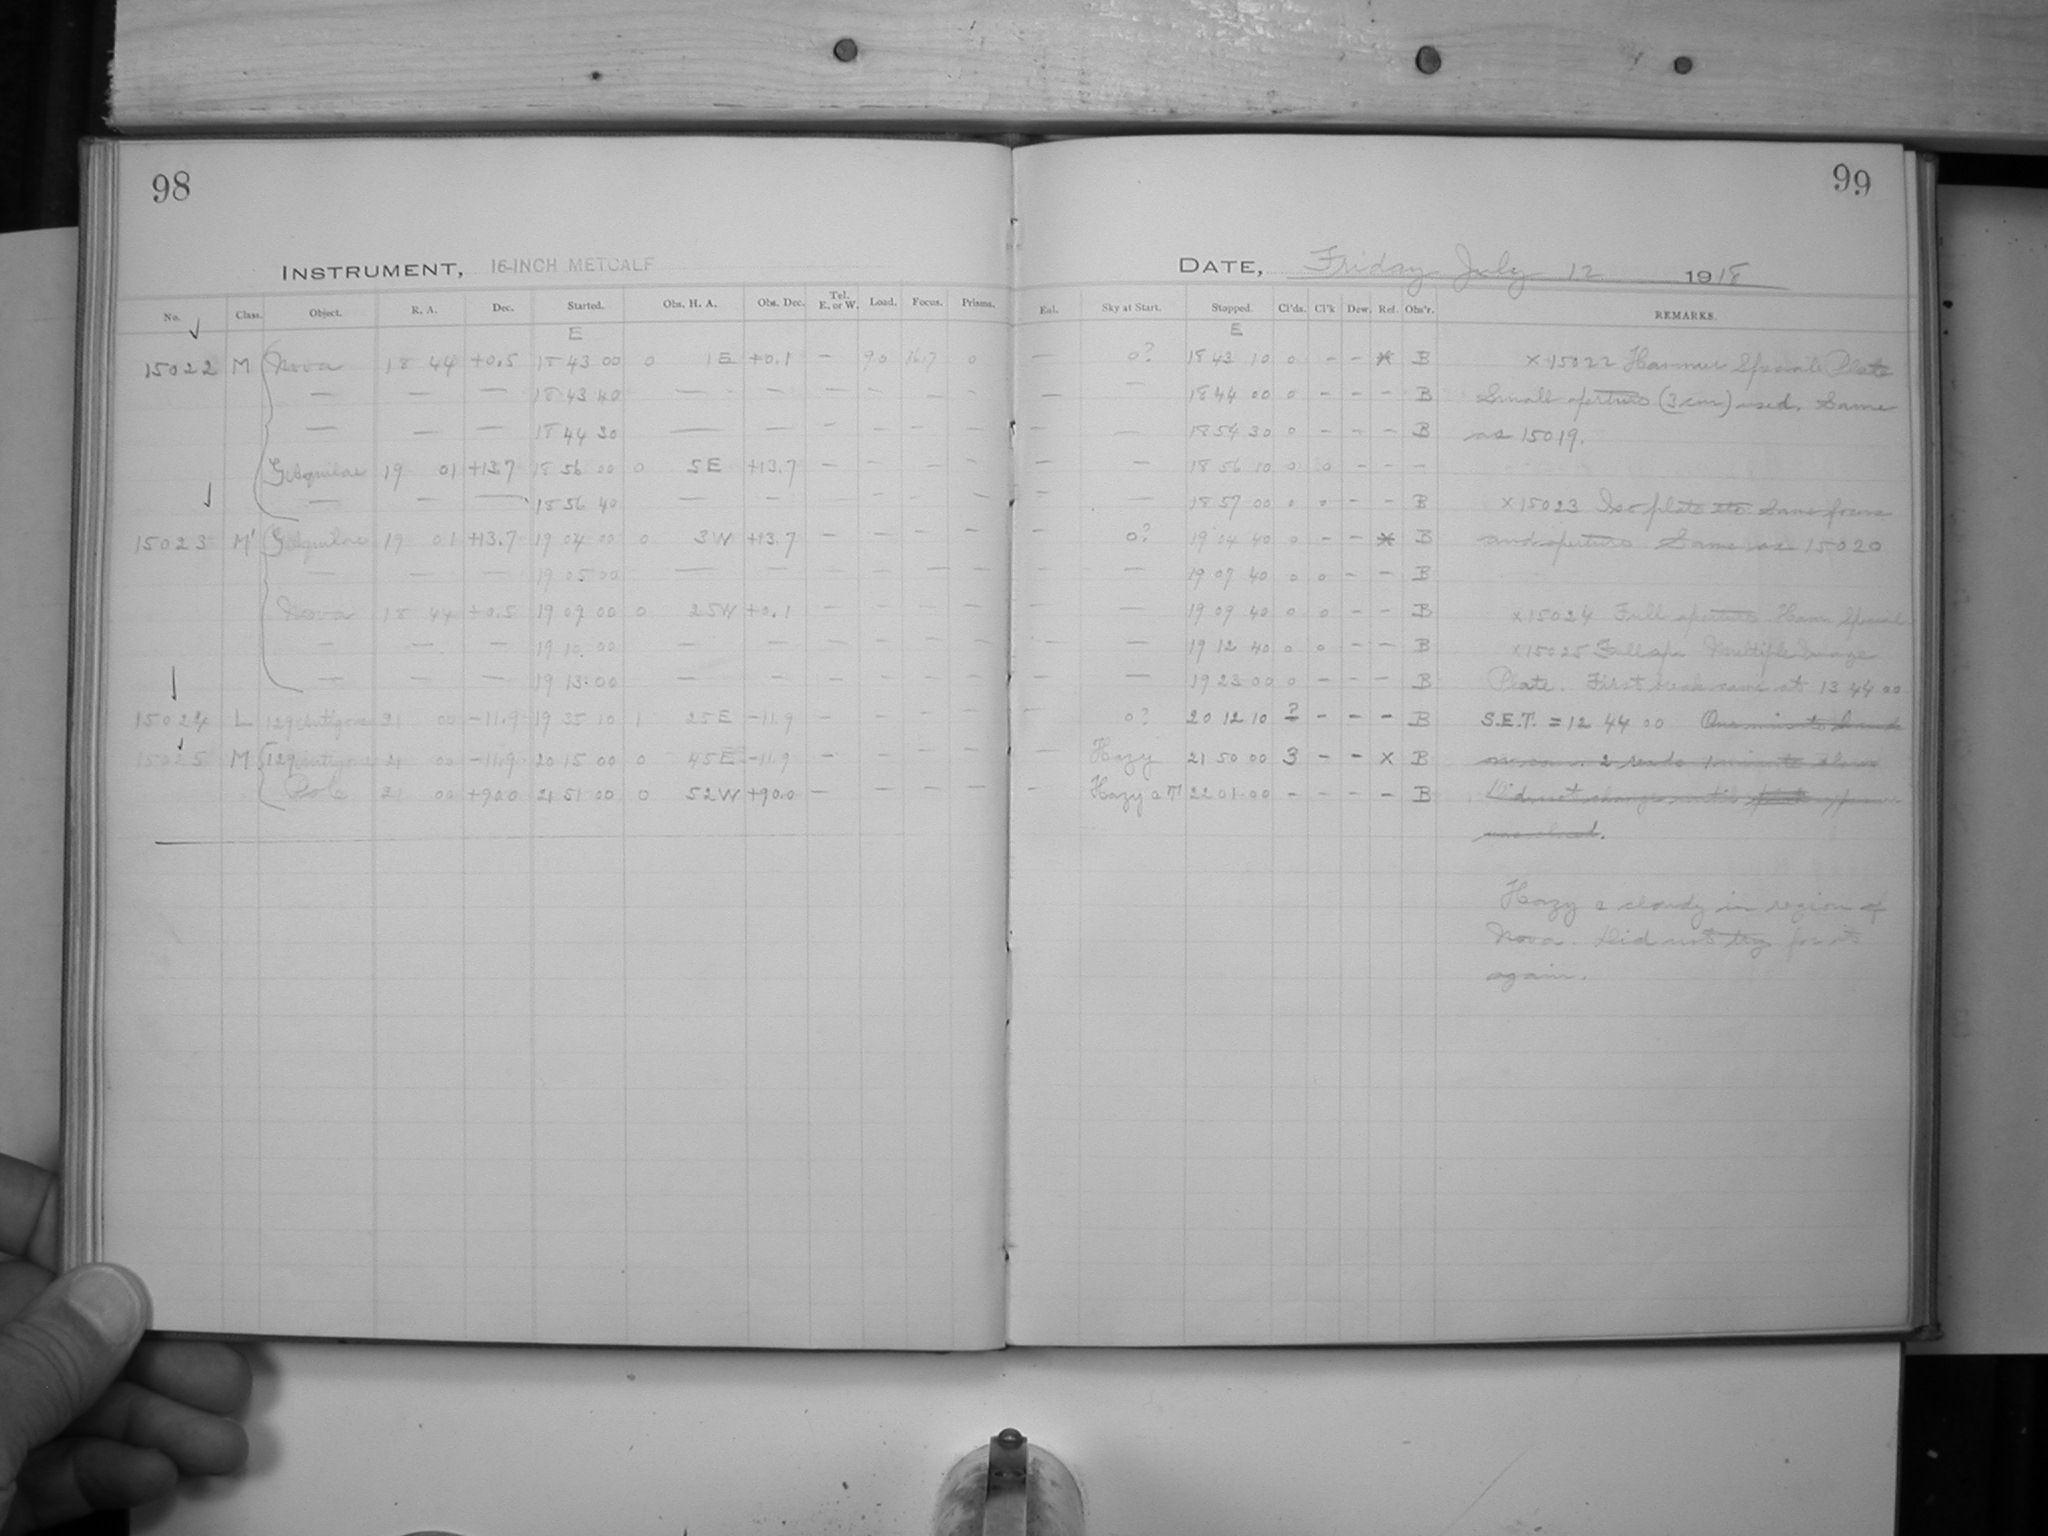 98
99
INSTRUMENT, 16-INCH METCALF
DATE, Friday July 12 1918
No. Class. Object. R. A. Dec. Started. Obs. H. A. Obs. Dec. Tel. E. or W. Load. Focus. Prisms. Eal. Sky at Start. Stopped. Cl'ds. Cl'k Dew. Ref. Obs'r. REMARKS.
E E
15022 M Nova 18 44 +0.5 18 43 00 0 1 E +0.1 — 90 16.7 0 — 0? 18 43 10 0 - - * B x 15022 Hammer Special Plate
— — — 18 43 40 — — — — — — — — — 18 44 00 0 - - - B Small aperture (3 cm) used. Same
— — — 18 44 30 — — — — — — — — — 18 54 30 0 - - - B as 15019.
Aquilae 19 01 +13.7 18 56 00 0 5 E +13.7 — — — — — — 18 56 10 0 0 - - -
— — — 18 56 40 — — — — — — — — — 18 57 00 0 0 - - B x 15023 Iso plate etc. Same focus
15023 M' Aquilae 19 01 +13.7 19 04 00 0 3 W +13.7 — — — — — — 0? 19 04 40 0 - - * B and aperture Same as 15020
— — — 19 05 00 — — — — — — — — — 19 07 40 0 0 - - B
Nova 18 44 +0.5 19 09 00 0 25 W +0.1 — — — — — — — 19 09 40 0 0 - - B x 15024 Full aperture Ham Special
— — — 19 10 00 — — — — — — — — — 19 12 40 0 0 - - B x 15025 Full ape Multiple Image
— — — 19 13 00 — — — — — — — — — 19 23 00 0 - - - B Plate. First break came at 13 44 00
15024 L 129 Antigone 21 00 -11.9 19 35 10 1 25 E -11.9 — — — — — — 0? 20 12 10 ? - - - B S.E.T. = 12 44 00 One minute
15025 M 129 Antigone 21 00 -11.9 20 15 00 0 45 E -11.9 — — — — — — Hazy 21 50 00 3 - - x B 2 1 minute
Pole 21 00 +90.0 21 51 00 0 52 W +90.0 — — — — — — Hazy 22 01 00 - - - - B Did not change until plate
Hazy & cloudy in region of
Nova. Did not try for it
again.